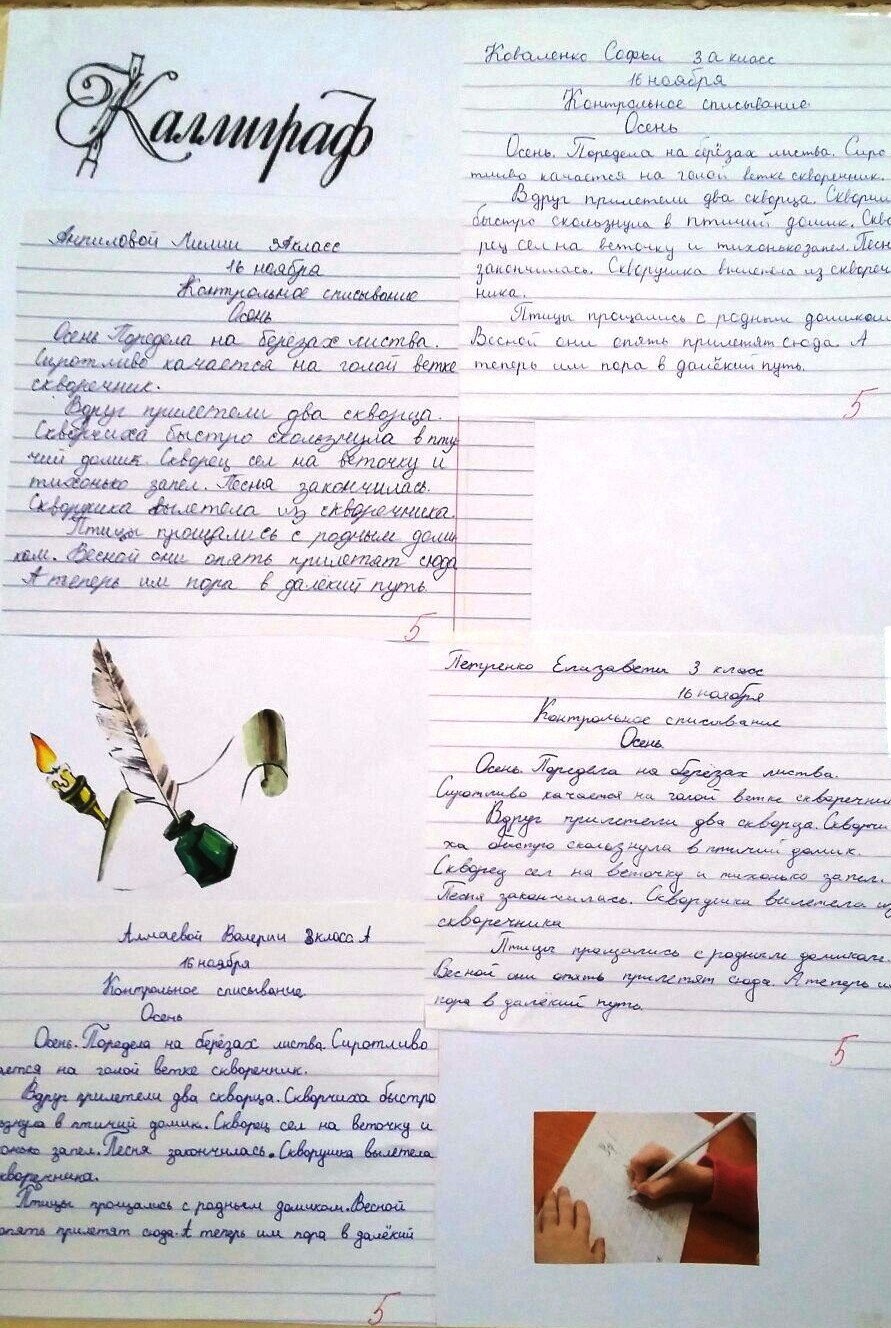 Каллиграф
Коваленко Софьи 3 а класс
16 ноября
Контрольное списывание
Осень
Осень. Поредела на берёзах листва. Сиро-
тливо качается на голой ветке скворечник.
Вдруг прилетели два скворца. Сквorчи
быстро скользнула в птичий домик. Скво
рец сел на веточку и тихонько запел. Песн
закончилась. Скворушка вылетела из скворе
ника.
Птицы прощались с родным домиком
Весной они опять прилетят сюда. А
теперь им пора в далёкий путь.
5
Анпиловой Лилии 3А класс
16 ноября
Контрольное списывание
Осень
Осень Поредела на берёзах листва.
Сиротливо качается на голой ветке
скворечник.
Вдруг прилетели два скворца.
Скворчиха быстро скользнула в пти
чий домик. Скворец сел на веточку и
тихонько запел. Песня закончилась.
Скворушка вылетела из скворечника.
Птицы прощались с родным доми
ком. Весной они опять прилетят сюда
А теперь им пора в далёкий путь
5
Петренко Елизаветы 3 класс
16 ноября
Контрольное списывание
Осень
Осень. Поредела на берёзах листва.
Сиротливо качается на голой ветке скворечник
Вдруг прилетели два скворца. Скворчи
ха быстро скользнула в птичий домик.
Скворец сел на веточку и тихонько запел.
Песня закончилась. Скворушка вылетела из
скворечника
Птицы прощались с родным домиком.
Весной они опять прилетят сюда. А теперь и
пора в далёкий путь.
5
Алмаевой Валерии 3 класс А
16 ноября
Контрольное списывание
Осень
Осень. Поредела на берёзах листва. Сиротливо
ается на голой ветке скворечник.
Вдруг прилетели два скворца. Скворчиха быстро
ользнула в птичий домик. Скворец сел на веточку и
онько запел. Песня закончилась. Скворушка вылетела
кворечника.
Птицы прощались с родным домиком. Весной
опять прилетят сюда. А теперь им пора в далёкий
5